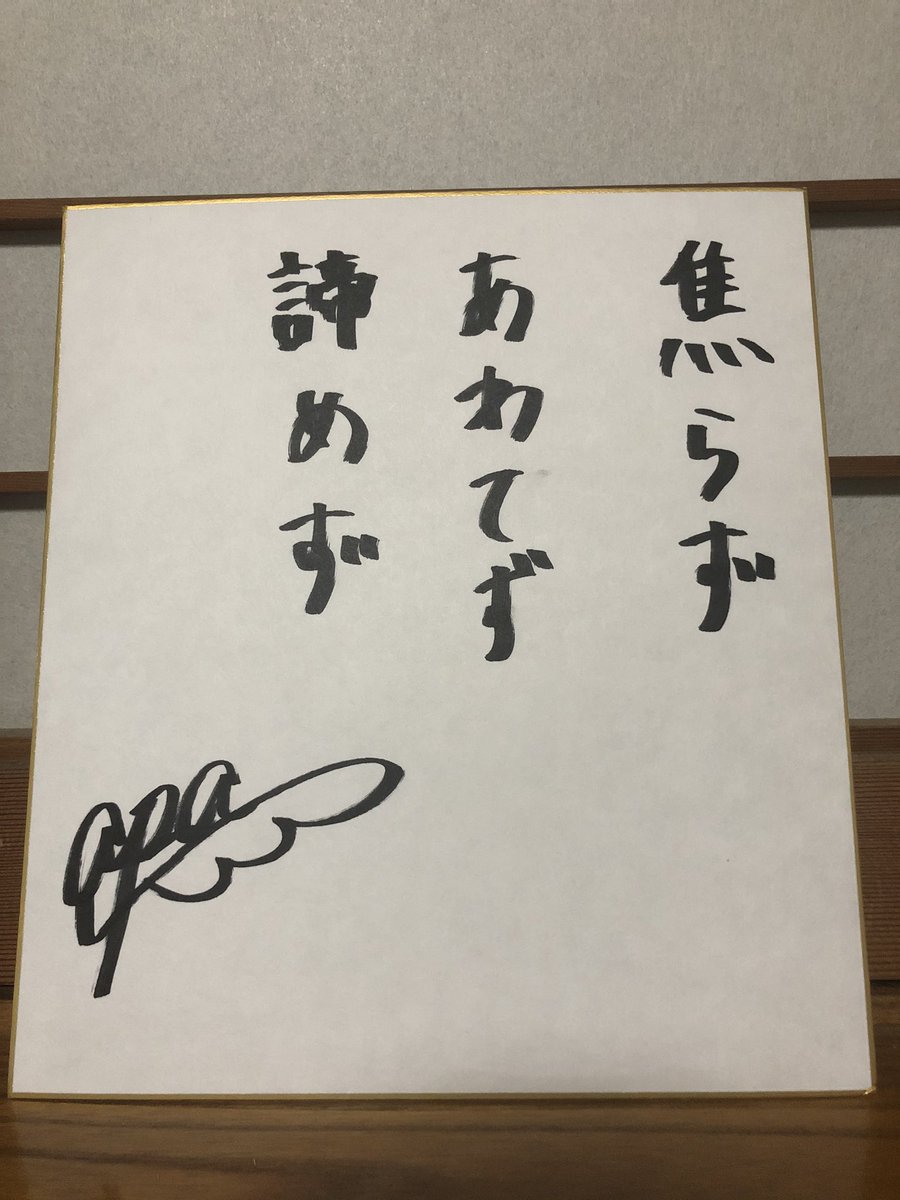 焦らず
あわてず
諦めず
apa